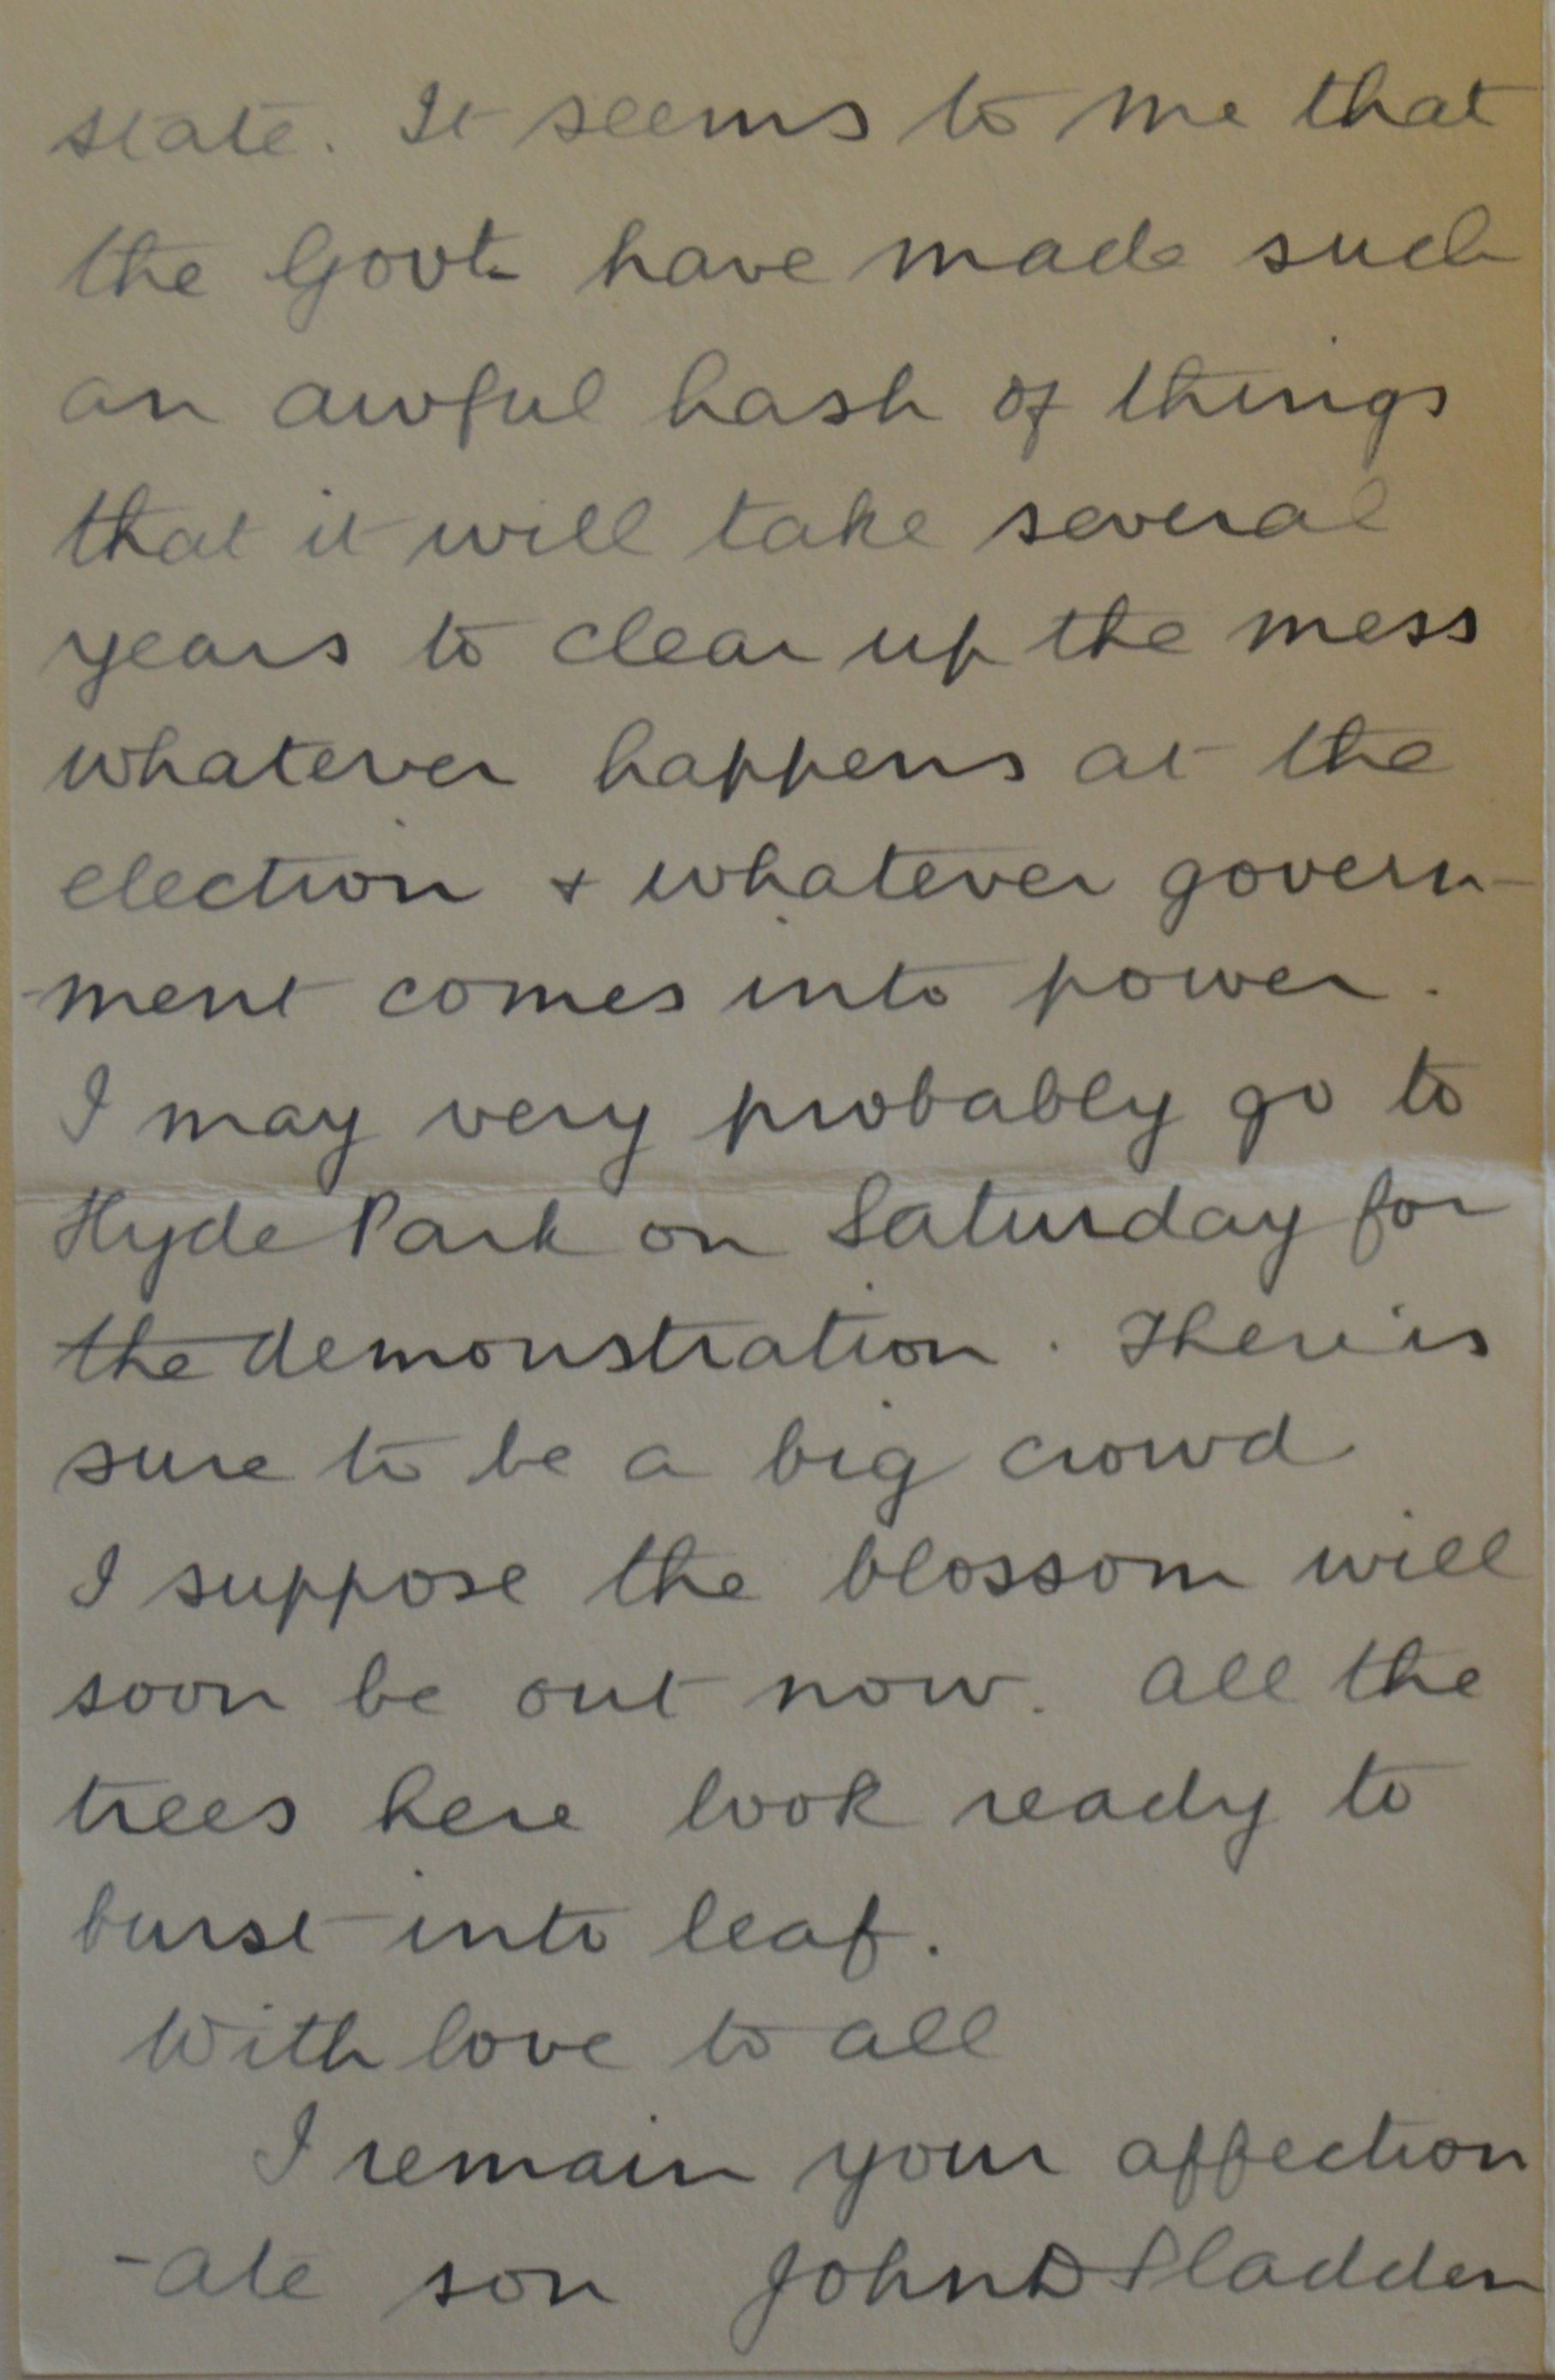 state. It seems to me that
the Govt. have made such
an awful hash of things
that it will take several
years to clear up the mess
whatever happens at the
election & whatever govern-
-ment comes into power.
I may very probably go to
Hyde Park on Saturday for
the demonstration. There is
sure to be a big crowd
I suppose the blossom will
soon be out now. All the
trees here look ready to
burst into leaf.
With love to all
I remain your affection
-ate son John D Sladden